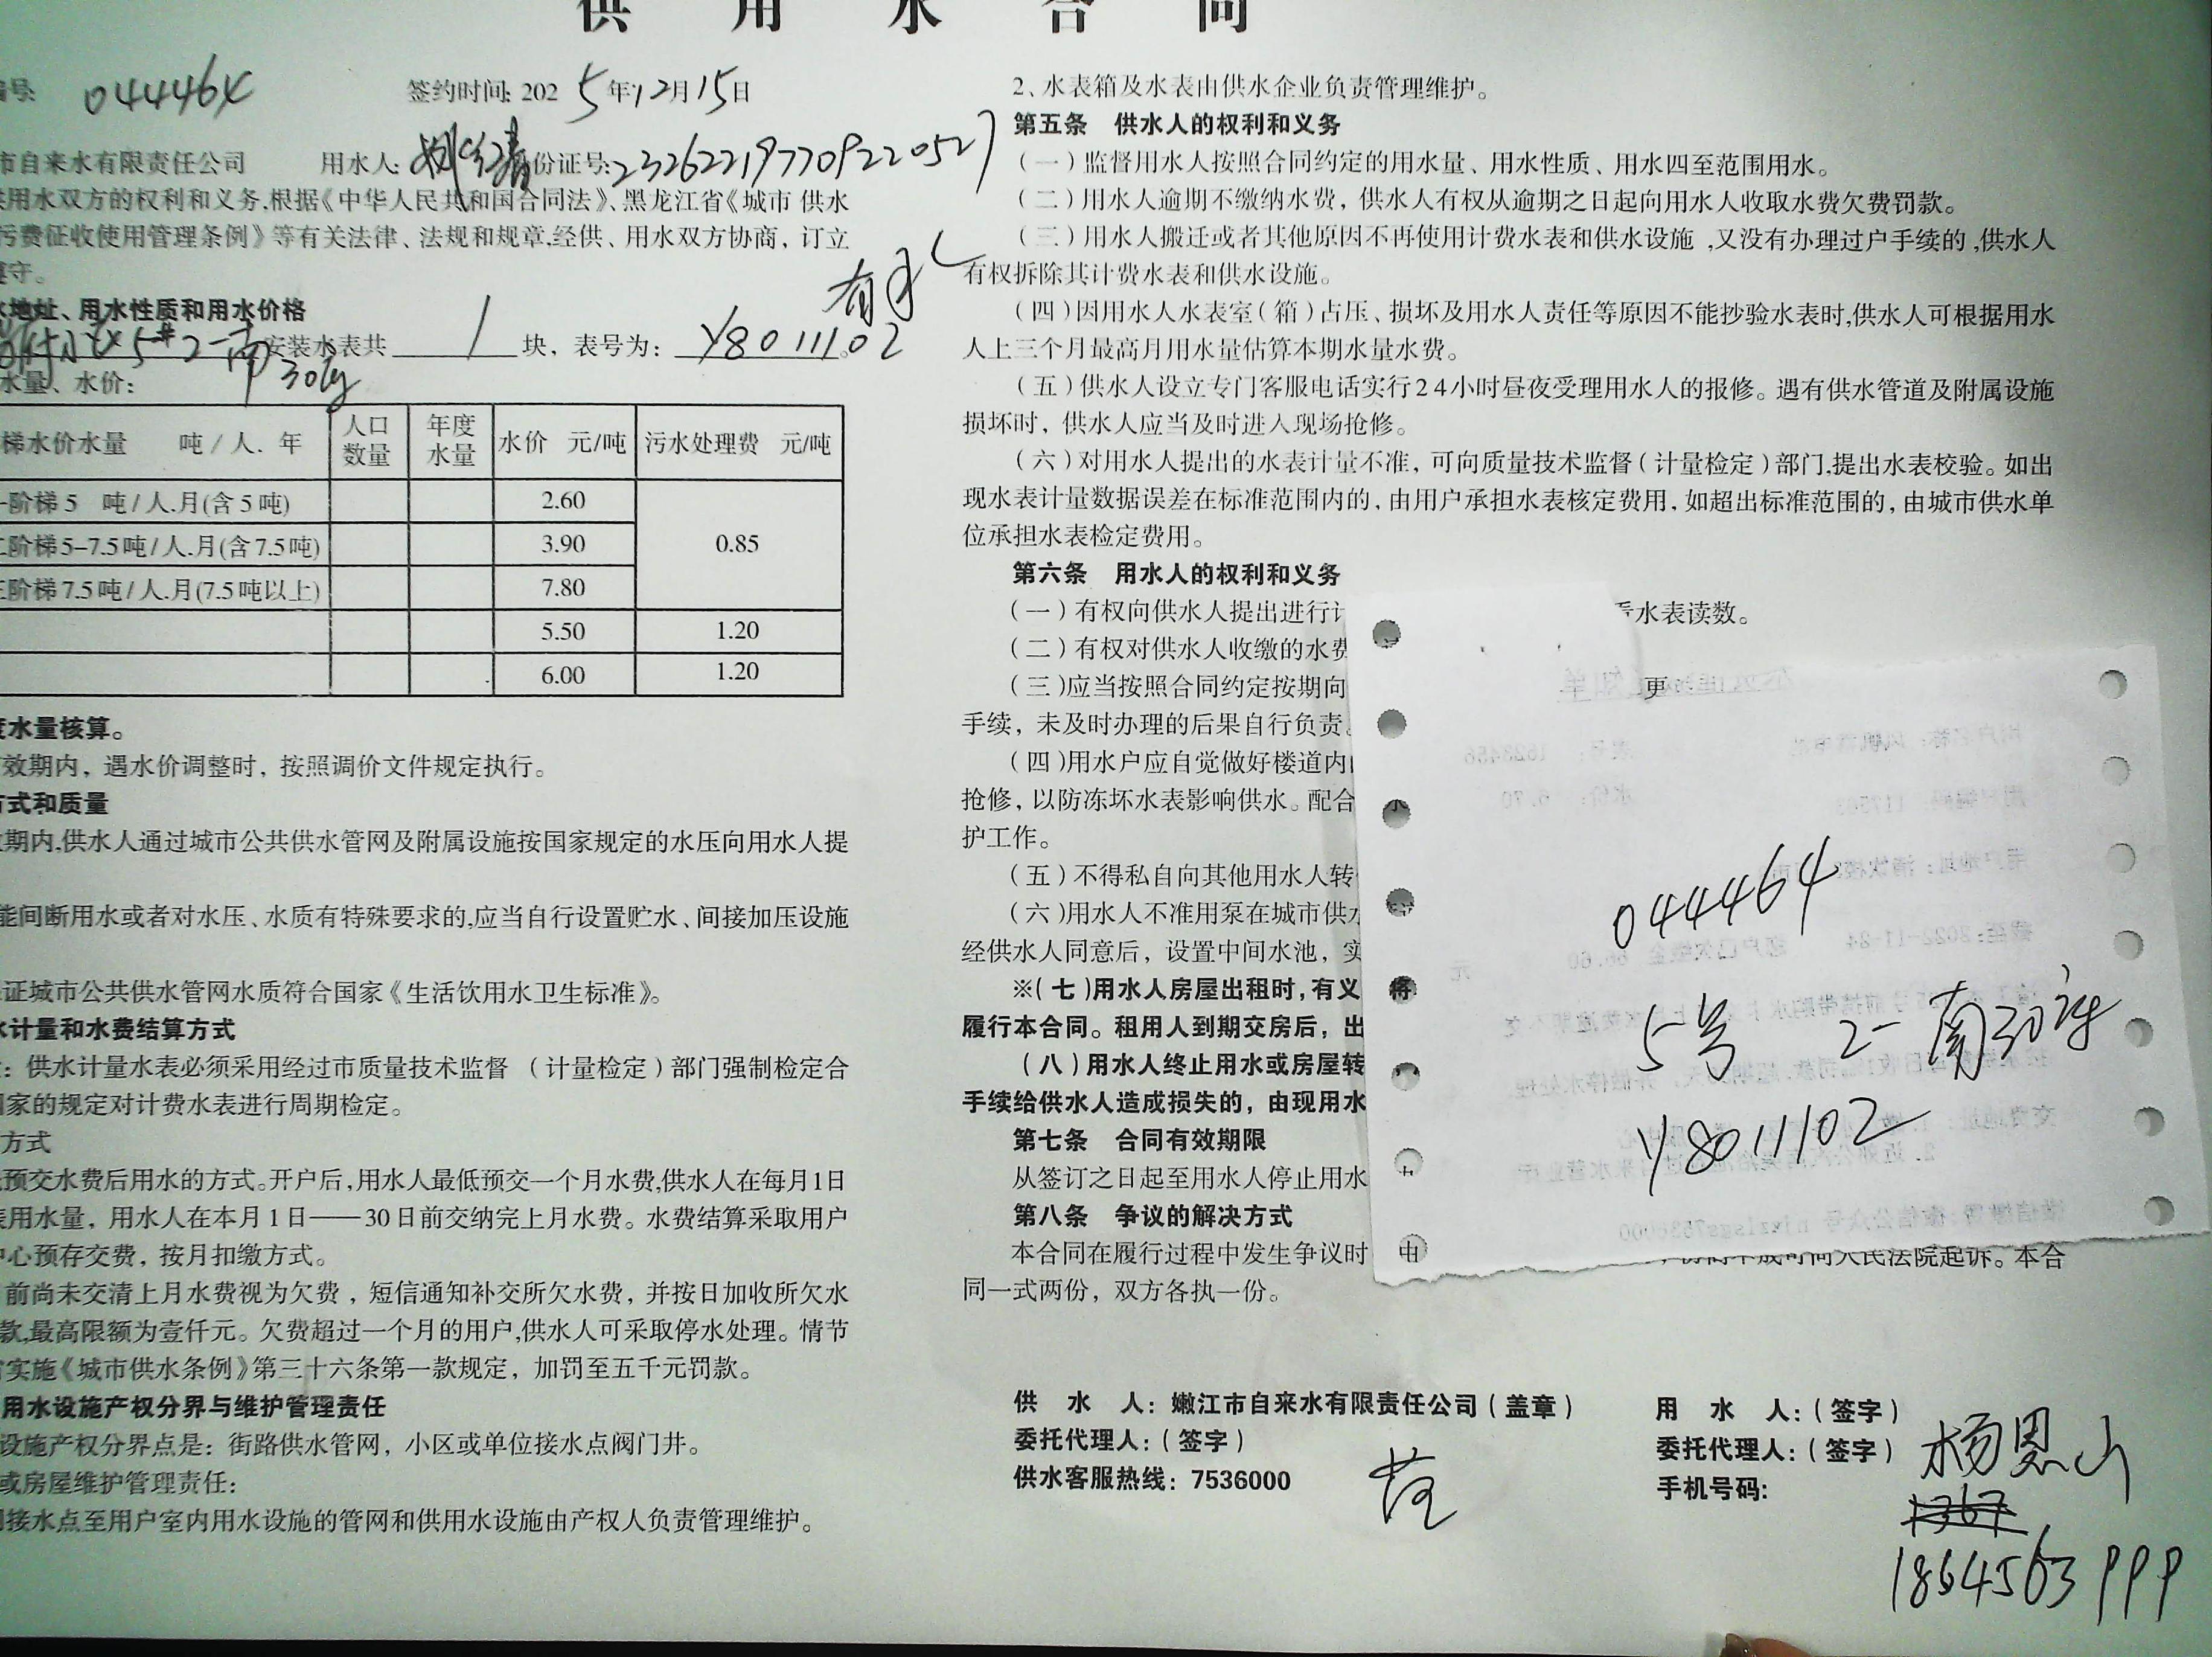 供 用 水 合 同
编号: 044464 签约时间: 2025年12月15日
市自来水有限责任公司 用水人: 份证号: 232622197709220527
用水双方的权利和义务,根据《中华人民共和国合同法》、黑龙江省《城市 供水
污费征收使用管理条例》等有关法律、法规和规章,经供、用水双方协商，订立
遵守。
有水
水地址、用水性质和用水价格
5# 2-南 安装水表共 1 块，表号为: Y8011102
水量、水价:
梯水价水量 吨/人.年 人口数量 年度水量 水价 元/吨 污水处理费 元/吨
一阶梯5 吨/人.月(含5吨) 2.60 0.85
二阶梯5-7.5吨/人.月(含7.5吨) 3.90
三阶梯7.5吨/人.月(7.5吨以上) 7.80
5.50 1.20
6.00 1.20
度水量核算。
效期内，遇水价调整时，按照调价文件规定执行。
方式和质量
期内,供水人通过城市公共供水管网及附属设施按国家规定的水压向用水人提
能间断用水或者对水压、水质有特殊要求的,应当自行设置贮水、间接加压设施
证城市公共供水管网水质符合国家《生活饮用水卫生标准》。
水计量和水费结算方式
: 供水计量水表必须采用经过市质量技术监督 （计量检定）部门强制检定合
国家的规定对计费水表进行周期检定。
方式
预交水费后用水的方式。开户后,用水人最低预交一个月水费,供水人在每月1日
表用水量，用水人在本月1日——30日前交纳完上月水费。水费结算采取用户
中心预存交费，按月扣缴方式。
前尚未交清上月水费视为欠费，短信通知补交所欠水费，并按日加收所欠水
款,最高限额为壹仟元。欠费超过一个月的用户,供水人可采取停水处理。情节
实施《城市供水条例》第三十六条第一款规定，加罚至五千元罚款。
用水设施产权分界与维护管理责任
设施产权分界点是: 街路供水管网，小区或单位接水点阀门井。
或房屋维护管理责任:
接水点至用户室内用水设施的管网和供用水设施由产权人负责管理维护。
2、水表箱及水表由供水企业负责管理维护。
第五条 供水人的权利和义务
（一）监督用水人按照合同约定的用水量、用水性质、用水四至范围用水。
（二）用水人逾期不缴纳水费，供水人有权从逾期之日起向用水人收取水费欠费罚款。
（三）用水人搬迁或者其他原因不再使用计费水表和供水设施,又没有办理过户手续的,供水人
有权拆除其计费水表和供水设施。
（四）因用水人水表室（箱）占压、损坏及用水人责任等原因不能抄验水表时,供水人可根据用水
人上三个月最高月用水量估算本期水量水费。
（五）供水人设立专门客服电话实行24小时昼夜受理用水人的报修。遇有供水管道及附属设施
损坏时，供水人应当及时进入现场抢修。
（六）对用水人提出的水表计量不准，可向质量技术监督（计量检定）部门,提出水表校验。如出
现水表计量数据误差在标准范围内的，由用户承担水表核定费用，如超出标准范围的，由城市供水单
位承担水表检定费用。
第六条 用水人的权利和义务
（一）有权向供水人提出进行计 看水表读数。
（二）有权对供水人收缴的水费
（三）应当按照合同约定按期向 更
手续，未及时办理的后果自行负责。
（四）用水户应自觉做好楼道内
抢修，以防冻坏水表影响供水。配合 水
护工作。
（五）不得私自向其他用水人转
（六）用水人不准用泵在城市供水
经供水人同意后，设置中间水池，实
※（七）用水人房屋出租时,有义 将
履行本合同。租用人到期交房后，出
（八）用水人终止用水或房屋转
手续给供水人造成损失的，由现用水
第七条 合同有效期限
从签订之日起至用水人停止用水
第八条 争议的解决方式
本合同在履行过程中发生争议时 由 协商不成可向人民法院起诉。本合
同一式两份，双方各执一份。
044464
5号 2-南30许
Y8011102
供 水 人: 嫩江市自来水有限责任公司（盖章）
委托代理人:（签字）
供水客服热线: 7536000
用 水 人:（签字）
委托代理人:（签字） 杨恩山
手机号码:
1864563999